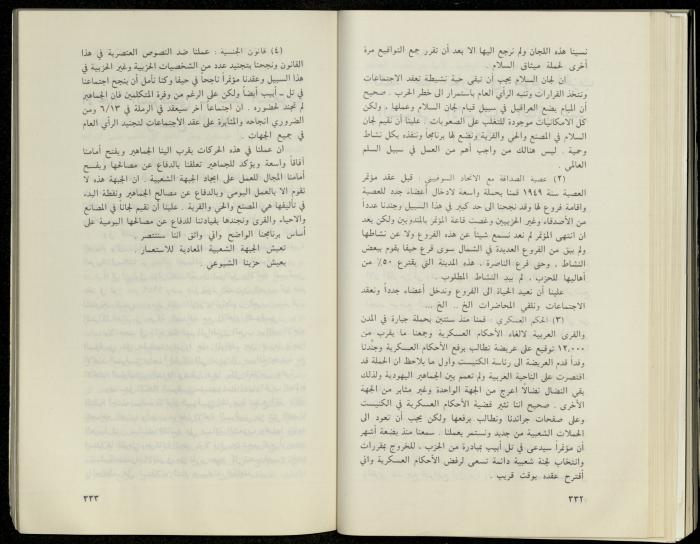 نسينا هذه اللجان ولم نرجع اليها الا بعد أن تقرر جمع التواقيع مرة
أخرى لحملة ميثاق السلام .
ان لجان السلام يجب أن تبقى حية نشيطة تعقد الاجتماعات
وتتخذ القرارات وتنبه الرأي العام باستمرار الى خطر الحرب . صحيح
أن المبام يضع العراقيل في سبيل قيام لجان السلام وعملها ، ولكن
كل الامكانيات موجودة للتغلب على الصعوبات . علينا أن نقيم لجان
السلام في المصنع والحي والقرية ونضع لها برنامجا وننفذه بكل نشاط
وحمية . ليس هنالك من واجب أهم من العمل في سبيل السلم
العالمي .
(٢) عصبة الصداقة مع الاتحاد السوفيتي : قبل عقد مؤتمر
العصبة سنة ١٩٤٩ قمنا بحملة واسعة لادخال أعضاء جدد للعصبة
واقامة فروع لها وقد نجحنا الى حد كبير في هذا السبيل وجندنا عدداً
من الأصدقاء وغير الحزبيين وغصت قاعة المؤتمر بالمندوبين ولكن بعد
ان انتهى المؤتمر لم نعد نسمع شيئا عن هذه الفروع ولا عن نشاطها
ولم يبق من الفروع العديدة في الشمال سوى فرع حيفا يقوم ببعض
النشاط ، وحتى فرع الناصرة ، هذه المدينة التي يقترع ٥٠٪ من
أهاليها للحزب ، لم يبد النشاط المطلوب .
علينا أن نعيد الحياة الى الفروع وندخل أعضاء جدداً ونعقد
الاجتماعات ونلقي المحاضرات الخ .. الخ ...
(٣) الحكم العسكري : قمنا منذ سنتين بحملة جبارة في المدن
والقرى العربية لالغاء الأحكام العسكرية وجمعنا ما يقرب من
١٢,٠٠٠ توقيع على عريضة تطالب برفع الأحكام العسكرية وجندنا
وفداً قدم العريضة الى رئاسة الكنيست وأول ما يلاحظ ان الحملة قد
اقتصرت على الناحية العربية ولم تعمم بين الجماهير اليهودية ولذلك
بقي النضال نضالاً أعرج من الجهة الواحدة وغير مثابر من الجهة
الأخرى . صحيح اننا نثير قضية الأحكام العسكرية في الكنيست
وعلى صفحات جرائدنا ونطالب برفعها ولكن يجب أن نعود الى
الحملات الشعبية من جديد ونستمر بعملنا . سمعنا منذ بضعة أشهر
أن مؤتمراً سيدعى في تل أبيب بمبادرة من الحزب ، للخروج بمقررات
وانتخاب لجنة شعبية دائمة تسعى لرفض الأحكام العسكرية واني
أقترح عقده بوقت قريب .
٣٣٢
(٤) قانون الجنسية : عملنا ضد النصوص العنصرية في هذا
القانون ونجحنا بتجنيد عدد من الشخصيات الحزبية وغير الحزبية في
هذا السبيل وعقدنا مؤتمراً ناجحاً في حيفا وكنا نأمل أن ينجح اجتماعنا
في تل ـ أبيب أيضاً ولكن على الرغم من وفرة المتكلمين فان الجماهير
لم تجند لحضوره . ان اجتماعاً آخر سيعقد في الرملة في ٦/١٣ ومن
الضروري انجاحه والمثابرة على عقد الاجتماعات لتجنيد الرأي العام
في جميع الجهات .
ان عملنا في هذه الحركات يقرب الينا الجماهير ويفتح أمامنا
آفاقاً واسعة ويؤكد للجماهير تعلقنا بالدفاع عن مصالحها ويفسح
أمامنا المجال للعمل على ايجاد الجبهة الشعبية . ان الجبهة هذه لا
تقوم الا بالعمل اليومي وبالدفاع عن مصالح الجماهير ونقطة البدء
في تأليفها هي المصنع والحي والقرية . علينا أن نقيم لجاناً في المصانع
والاحياء والقرى ونجندها بقيادتنا للدفاع عن مصالحها اليومية على
أساس برنامجنا الواضح واني واثق اننا سننتصر .
تعيش الجبهة الشعبية المعادية للاستعمار .
يعيش حزبنا الشيوعي .
٣٣٣